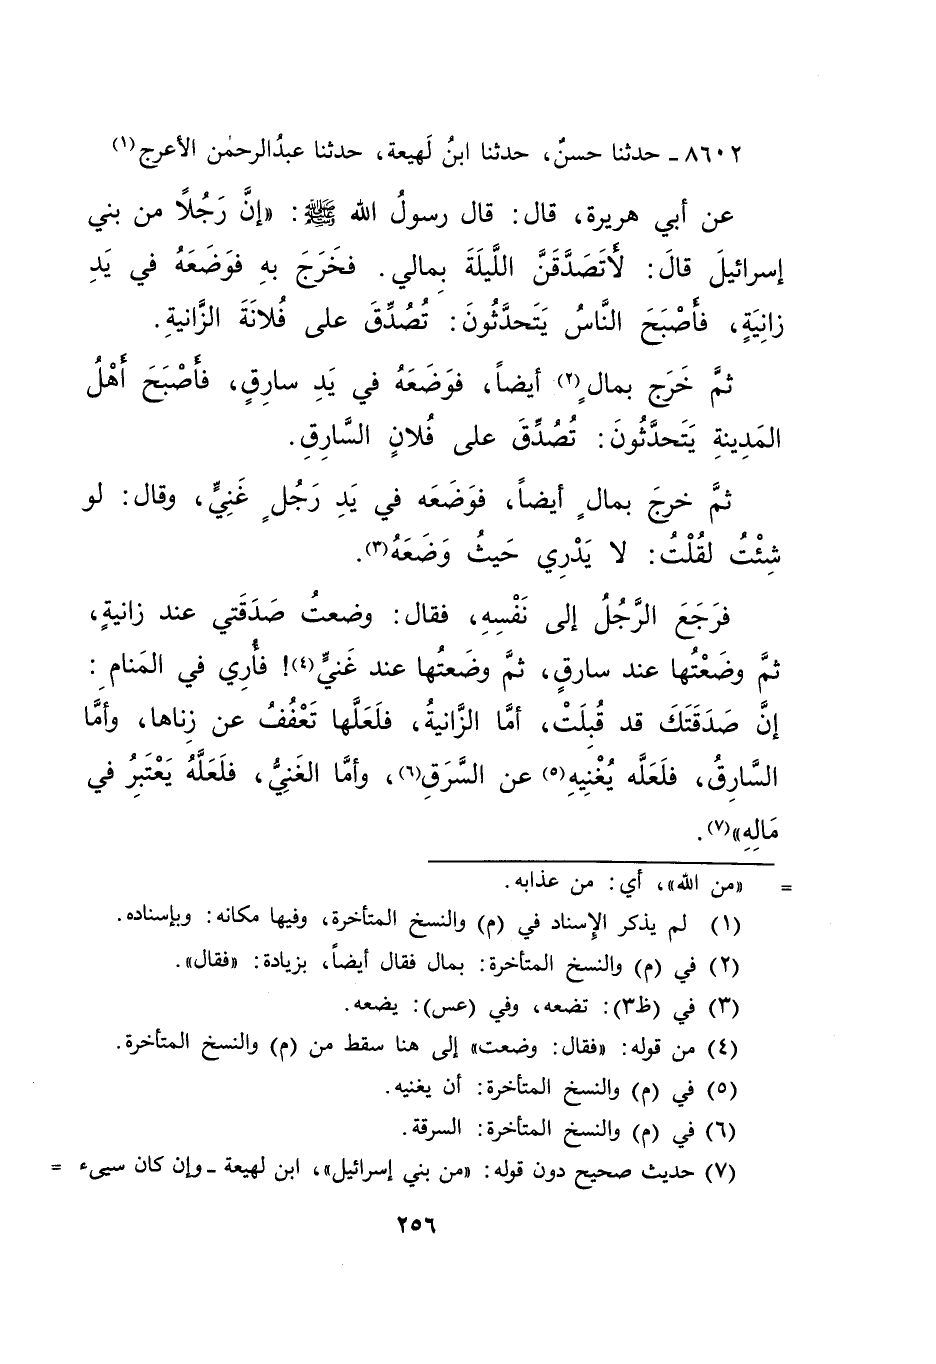 ٨٦٠٢ ـ حدثنا حسنٌ، حدثنا ابنُ لَهيعة، حدثنا عبدُالرحمٰن الأعرج(١)
عن أبي هريرة، قال: قال رسولُ الله ﷺ: «إنَّ رَجُلًا من بني
إسرائيلَ قالَ: لَأَتَصَدَّقَنَّ اللَّيلَةَ بِمالي. فخَرَجَ بهِ فوَضَعَهُ في يَدِ
زانِيَةٍ، فأَصْبَحَ النَّاسُ يَتَحدَّثُونَ: تُصُدِّقَ على فُلانَةَ الزَّانيةِ.
ثمَّ خَرَج بمالٍ(٢) أيضاً، فوَضَعَهُ في يَدِ سارِقٍ، فأَصْبَحَ أَهْلُ
المَدِينةِ يَتَحدَّثُونَ: تُصُدِّقَ على فُلانٍ السَّارِقِ.
ثمَّ خرجَ بمالٍ أيضاً، فوَضَعَه في يَدِ رَجُلٍ غَنِيٍّ، وقال: لو
شِئْتُ لقُلْتُ: لا يَدْرِي حَيثُ وَضَعَهُ(٣).
فرَجَعَ الرَّجُلُ إلى نَفْسِهِ، فقال: وضعتُ صَدَقَتي عند زانيةٍ،
ثمَّ وضَعْتُها عند سارقٍ، ثمَّ وضَعتُها عند غَنيٍّ(٤)! فأُرِي في المَنامِ:
إنَّ صَدَقَتَكَ قد قُبِلَتْ، أمَّا الزَّانيةُ، فلَعَلَّها تَعْفُفُ عن زِناها، وأمَّا
السَّارِقُ، فلَعَلَّه يُغْنِيهِ(٥) عن السَّرَقِ(٦)، وأمَّا الغَنِيُّ، فلَعَلَّهُ يَعْتَبِرُ في
مَالِهِ»(٧).
= «من الله»، أي: من عذابه.
(١) لم يذكر الإسناد في (م) والنسخ المتأخرة، وفيها مكانه: وبإسناده.
(٢) في (م) والنسخ المتأخرة: بمال فقال أيضاً، بزيادة: «فقال».
(٣) في (ظ٣): تضعه، وفي (عس): يضعه.
(٤) من قوله: «فقال: وضعت» إلى هنا سقط من (م) والنسخ المتأخرة.
(٥) في (م) والنسخ المتأخرة: أن يغنيه.
(٦) في (م) والنسخ المتأخرة: السرقة.
(٧) حديث صحيح دون قوله: «من بني إسرائيل»، ابن لهيعة ـ وإن كان سيىء =
٢٥٦